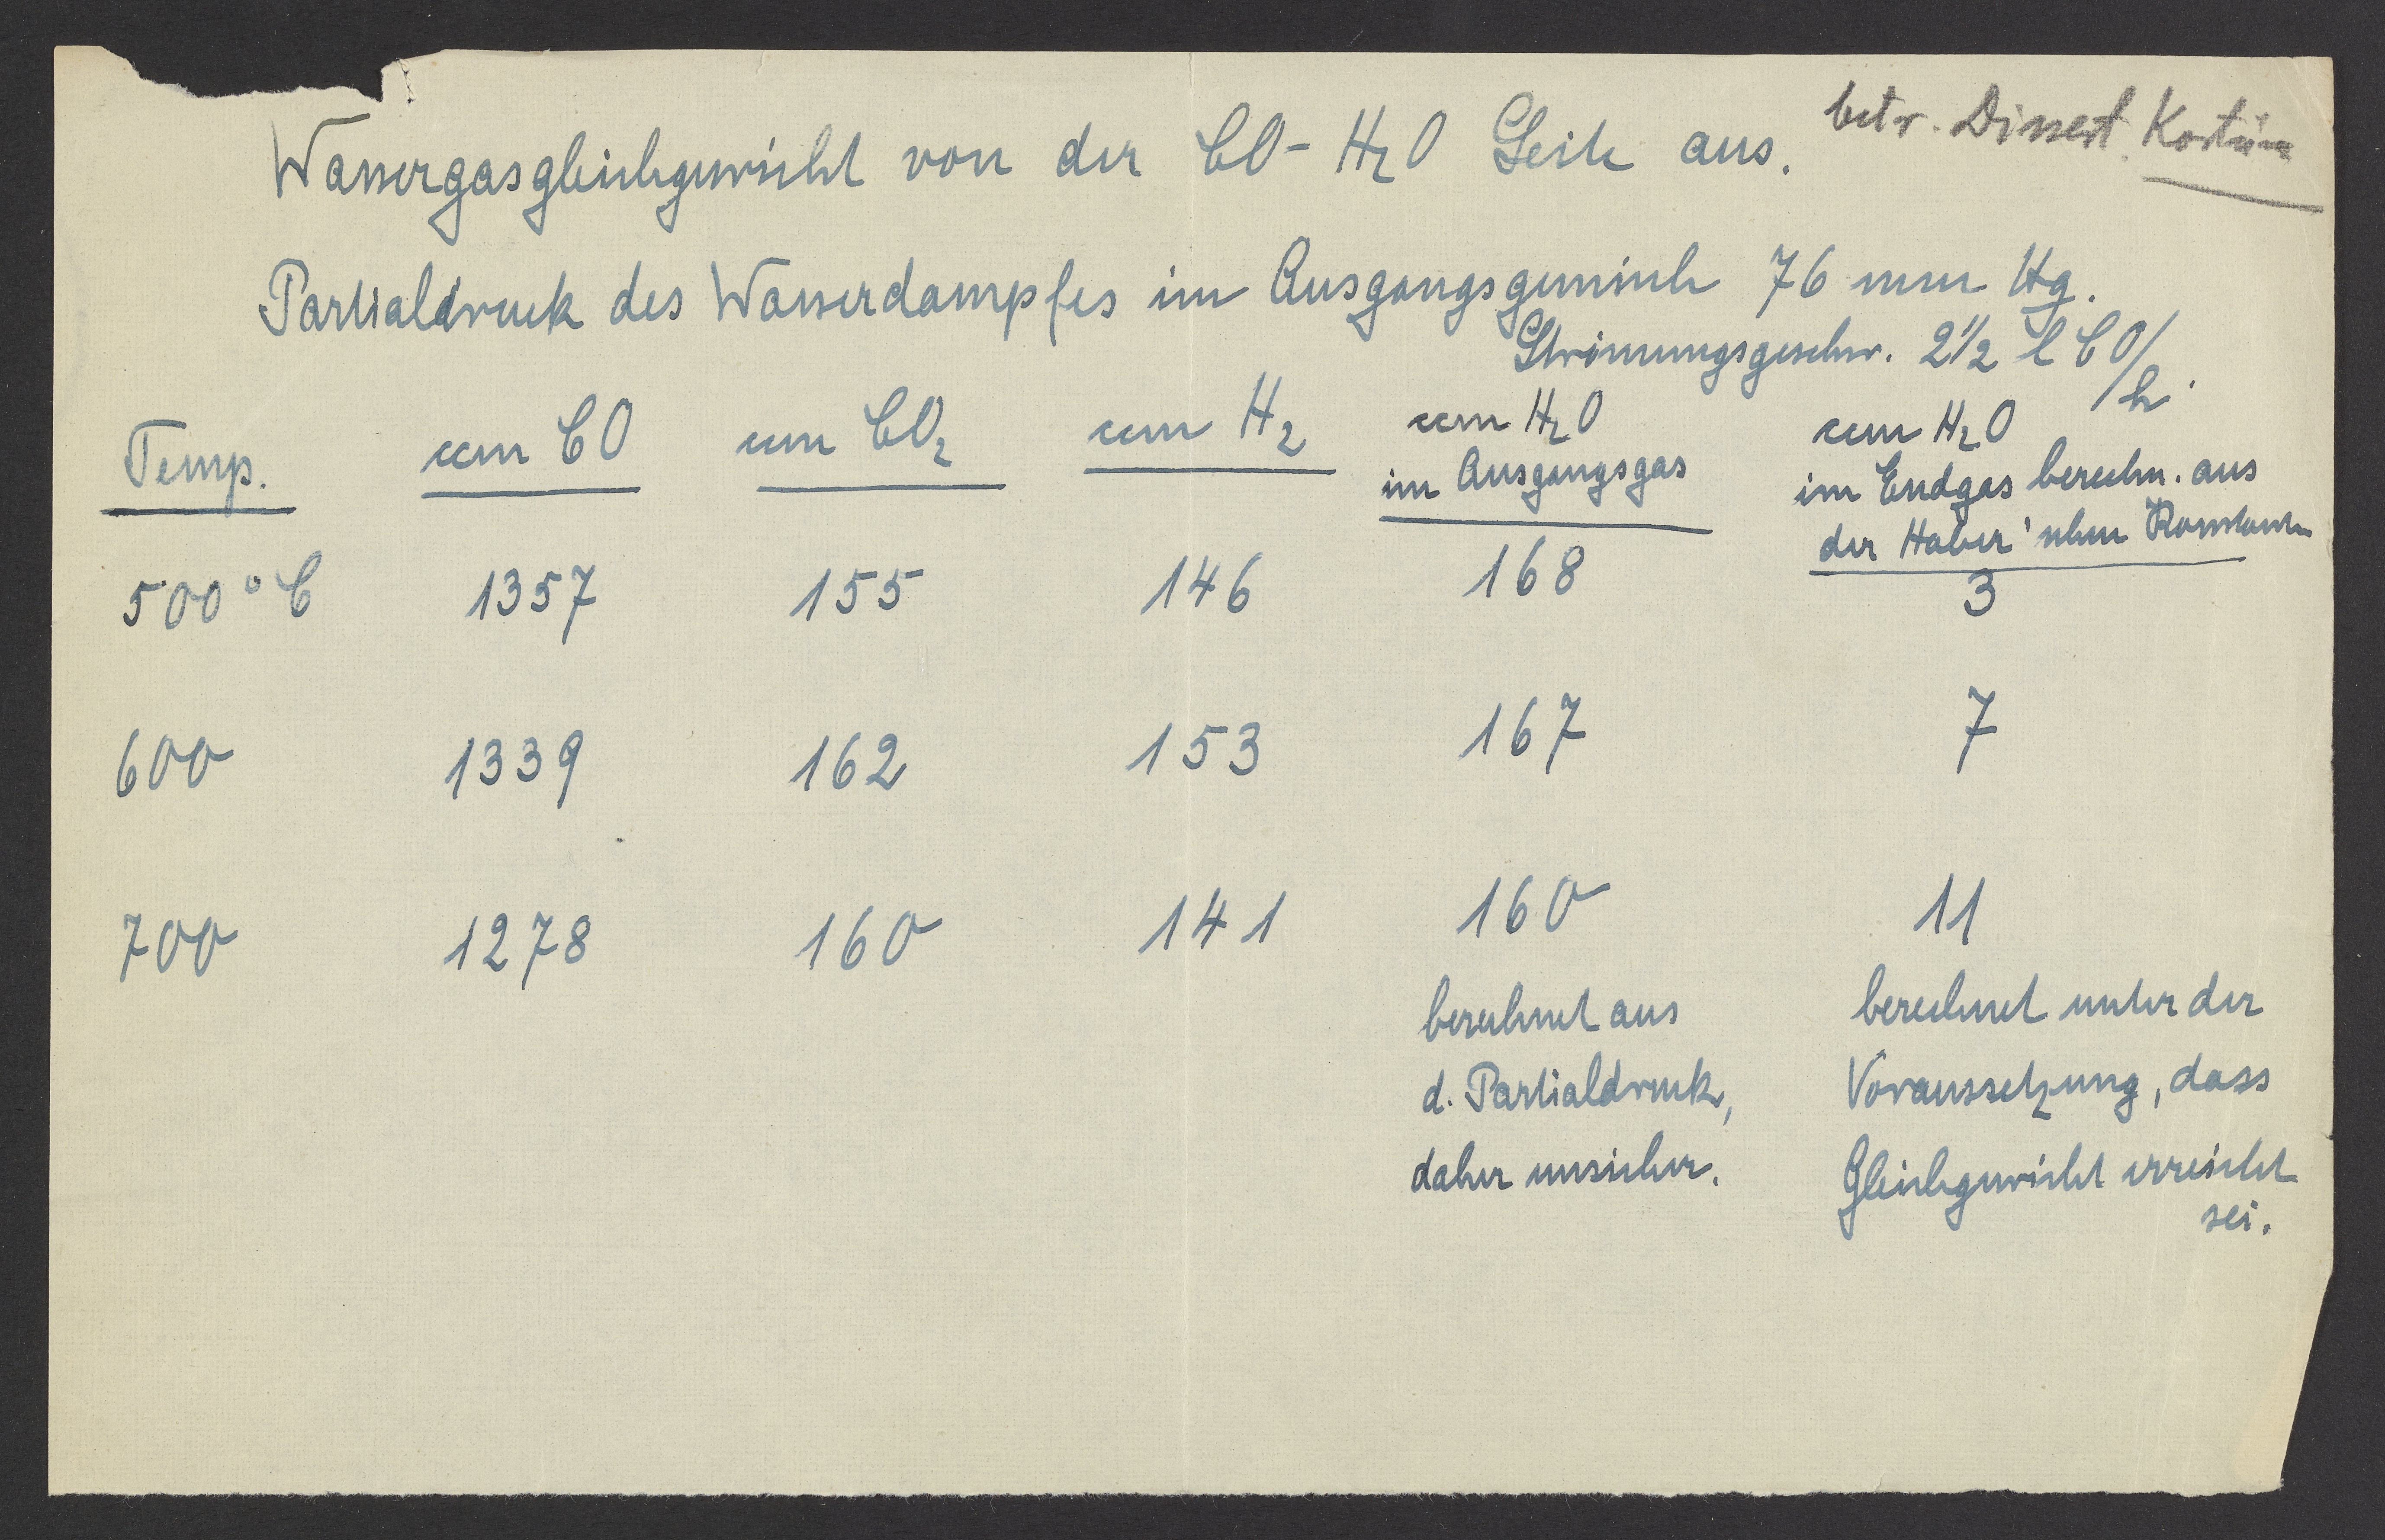 betr. Dissert. Kortüm
Wassergasgleichgewicht von der CO-H2O Seite aus.
Partialdruck des Wasserdampfes im Ausgangsgemisch 76 mm Hg.
Strömungsgeschw. 2 1/2 l CO/h.
Temp. ccm CO ccm CO2 ccm H2 ccm H2O ccm H2O
im Ausgangsgas im Endgas berechn. aus
der Haber'schen Konstante
500°C 1357 155 146 168 3
600 1339 162 153 167 7
700 1278 160 141 160 11
berechnet aus berechnet unter der
d. Partialdruck, Voraussetzung, dass
daher unsicher. Gleichgewicht erreicht
sei.